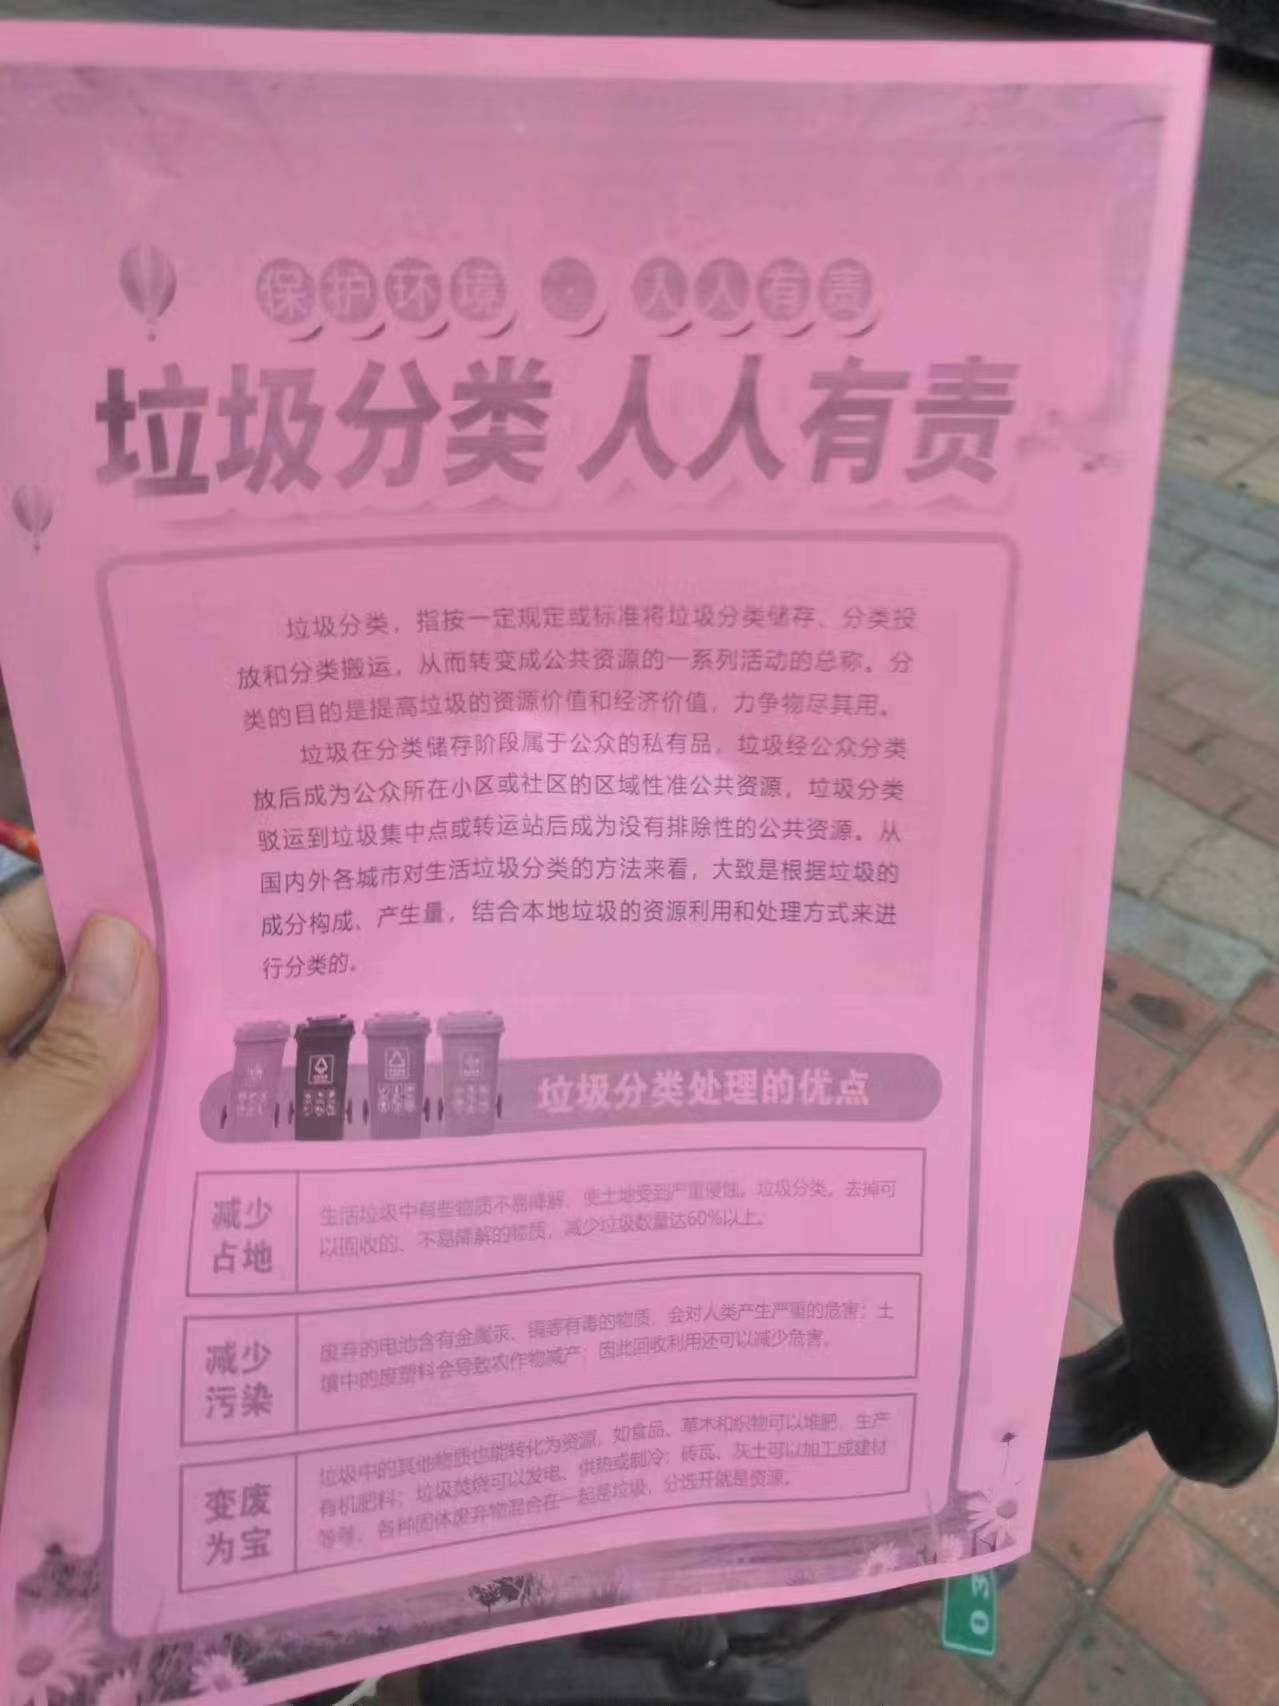 保护环境 人人有责
垃圾分类 人人有责
垃圾分类，指按一定规定或标准将垃圾分类储存、分类投
放和分类搬运，从而转变成公共资源的一系列活动的总称。分
类的目的是提高垃圾的资源价值和经济价值，力争物尽其用。
垃圾在分类储存阶段属于公众的私有品，垃圾经公众分类
放后成为公众所在小区或社区的区域性准公共资源，垃圾分类
驳运到垃圾集中点或转运站后成为没有排除性的公共资源。从
国内外各城市对生活垃圾分类的方法来看，大致是根据垃圾的
成分构成、产生量，结合本地垃圾的资源利用和处理方式来进
行分类的。
垃圾分类处理的优点
减少
占地
生活垃圾中有些物质不易降解，使土地受到严重侵蚀。垃圾分类，去掉可
以回收的、不易降解的物质，减少垃圾数量达60%以上。
减少
污染
废弃的电池含有金属汞、镉等有毒的物质，会对人类产生严重的危害；土
壤中的废塑料会导致农作物减产；因此回收利用还可以减少危害。
变废
为宝
垃圾中的其他物质也能转化为资源，如食品、草木和织物可以堆肥，生产
有机肥料；垃圾焚烧可以发电、供热或制冷；砖瓦、灰土可以加工成建材
等等，各种固体废弃物混合在一起是垃圾，分选开就是资源。